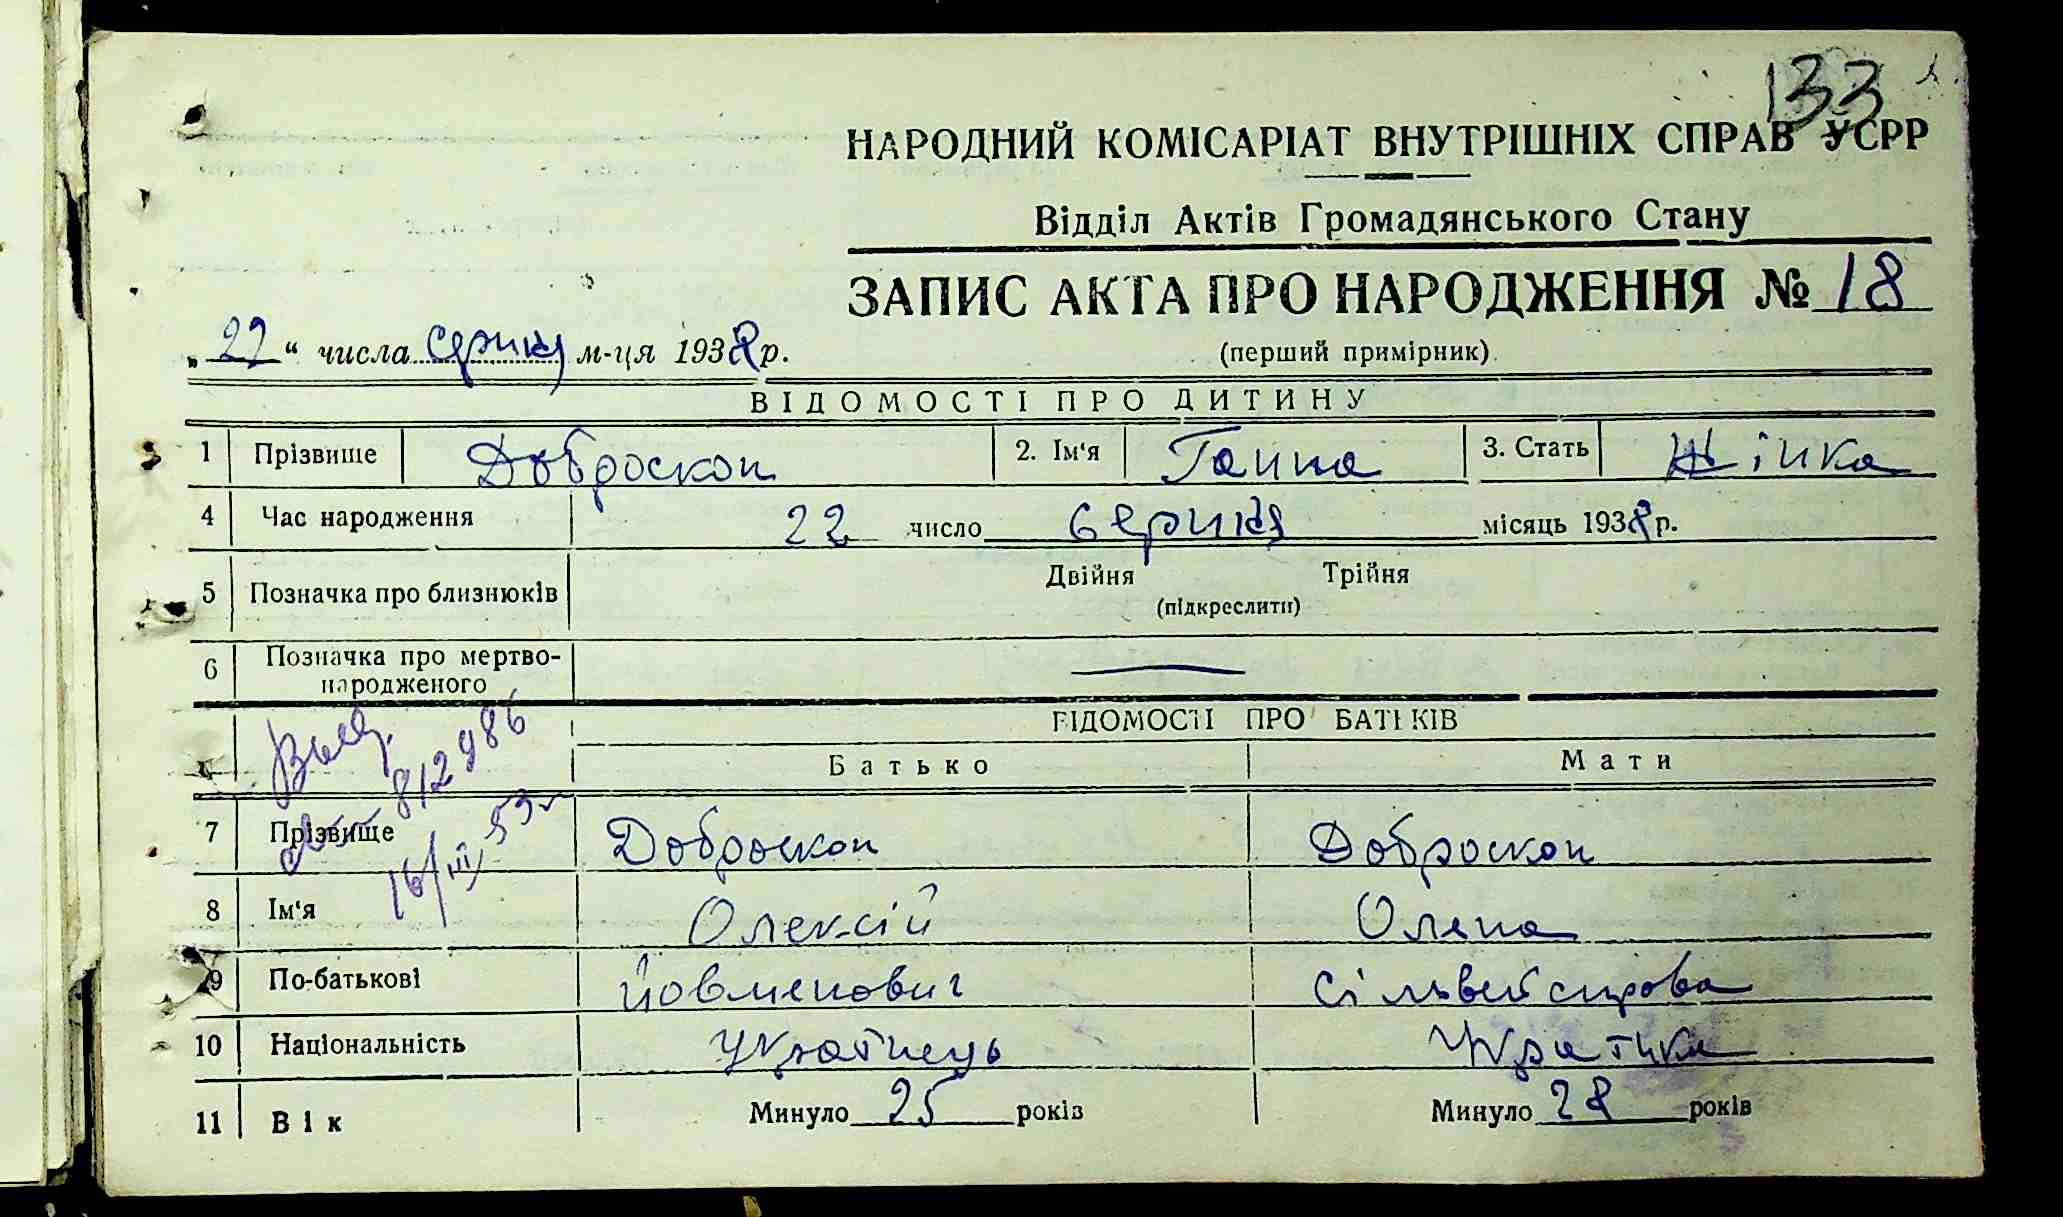 133
НАРОДНИЙ КОМІСАРІАТ ВНУТРІШНІХ СПРАВ УСРР
Відділ Актів Громадянського Стану
ЗАПИС АКТА ПРО НАРОДЖЕННЯ № 18
„22“ числа серпня м-ця 1938 р.
(перший примірник)
ВІДОМОСТІ ПРО ДИТИНУ
1 Прізвище Доброскок 2. Ім'я Ганна 3. Стать Жінка
4 Час народження 22 число серпня місяць 1938 р.
5 Позначка про близнюків Двійня Трійня
(підкреслити)
6 Позначка про мертво-
народженого —
ВІДОМОСТІ ПРО БАТЬКІВ
Батько Мати
812986
16/III 53
7 Прізвище Доброскок Доброскок
8 Ім'я Олексій Олена
9 По-батькові Йовменович Сільвейстрова
10 Національність Українець Українка
11 Вік Минуло 25 років Минуло 28 років